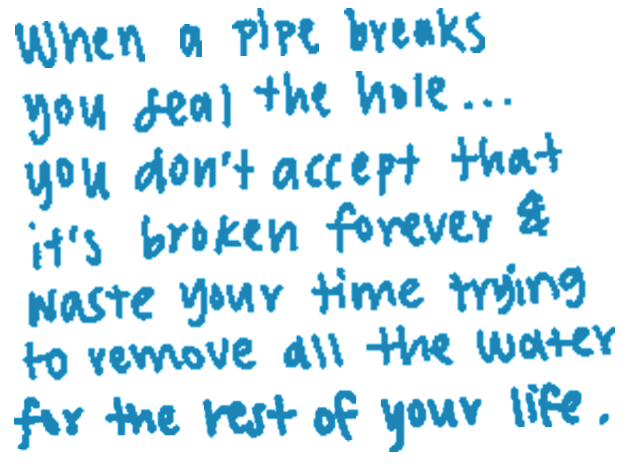 When a pipe breaks
you seal the hole...
you don't accept that
it's broken forever &
waste your time trying
to remove all the water
for the rest of your life.